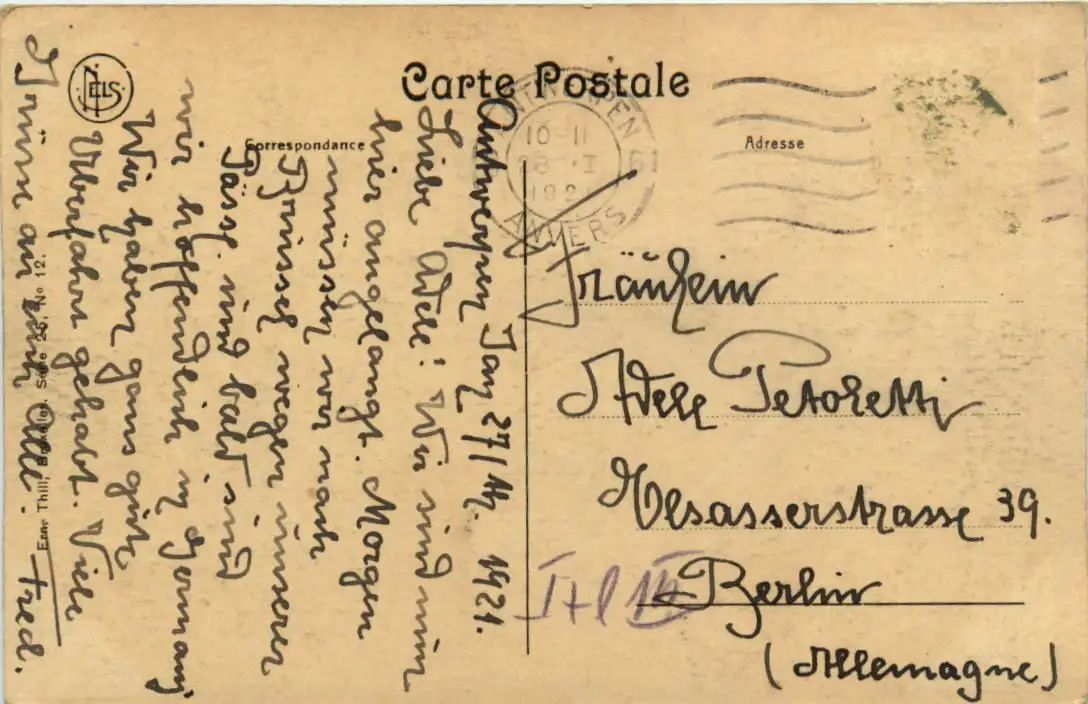 Carte Postale
Correspondance
Adresse
NELS
ANTWERPEN
10-11
28 I
1921
ANVERS
Antwerpen Jan 27/ 1921.
Liebe Adele! Wir sind nun
hier angelangt. Morgen
müssen wir nach
Brüssel wegen unserer
Pässe und bald sind
wir hoffendlich in Germany
Wir haben ganz gute
Überfahrt gehabt. Viele
Grüsse an euch Alle. Fred.
Fräulein
Adele Petoletti
Elsasserstrasse 39.
Berlin
(Allemagne)
Ern. Thill, Bruxelles. Série 25, No 12.